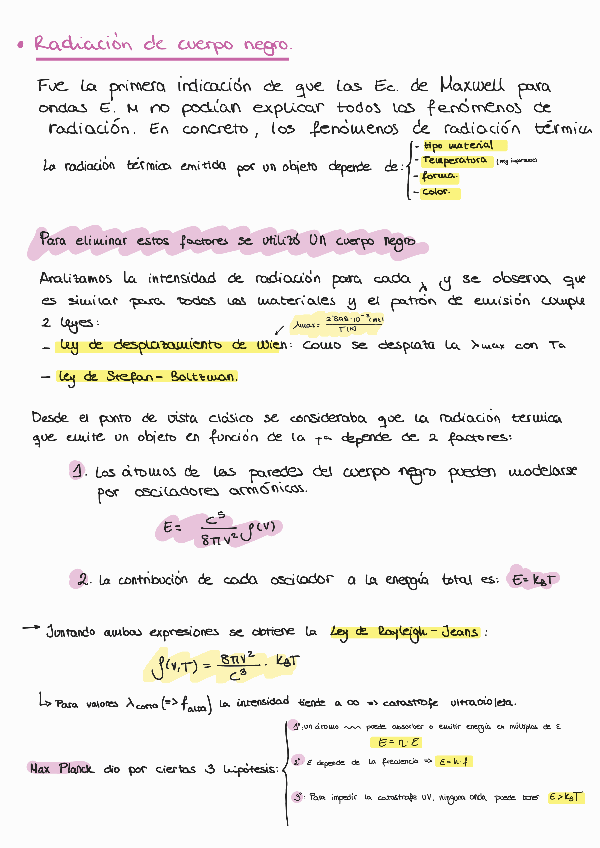 • Radiación de cuerpo negro.
Fue la primera indicación de que las Ec. de Maxwell para
ondas E. M no podían explicar todos los fenómenos de
radiación. En concreto, los fenómenos de radiación térmica
La radiación térmica emitida por un objeto depende de:
- tipo material
- Temperatura (muy importante)
- forma.
- color.
Para eliminar estos factores se utilizó UN cuerpo negro
Analizamos la intensidad de radiación para cada λ y se observa que
es similar para todos los materiales y el patrón de emisión cumple
2 leyes:
λmax = 2'898·10⁻³(m·k) / T(K)
- Ley de desplazamiento de Wien: como se desplaza la λmax con Tª
- Ley de Stefan-Boltzman.
Desde el punto de vista clásico se consideraba que la radiación termica
que emite un objeto en función de la Tª depende de 2 factores:
1. Los átomos de las paredes del cuerpo negro pueden modelarse
por osciladores armónicos.
E = C³ / 8πν² ρ(ν)
2. La contribución de cada oscilador a la energía total es: E=KBT
→ Juntando ambas expresiones se obtiene la Ley de Rayleigh-Jeans:
ρ(ν,T) = 8πν² / C³ · KBT
↳ Para valores λcorta (=> falta) la intensidad tiende a ∞ => catastrofe ultravioleta.
Max Planck dio por ciertas 3 hipótesis:
1º: Un átomo ~~~ puede absorber o emitir energía en múltiplos de E
E = n·E
2º E depende de la frecuencia => E=h·f
3º: Para impedir la catastrofe UV, ninguna onda puede tener E>KBT